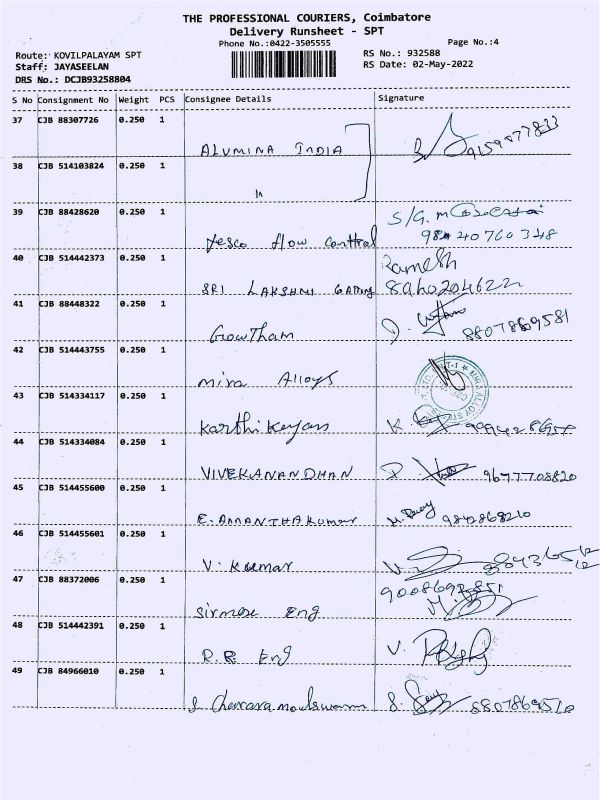 THE PROFESSIONAL COURIERS, Coimbatore
Delivery Runsheet - SPT
Phone No.:0422-3505555
Page No.:4
Route: KOVILPALAYAM SPT
RS No.: 932588
Staff: JAYASEELAN
RS Date: 02-May-2022
DRS No.: DCJB93258804
S No Consignment No Weight PCS Consignee Details Signature
37 CJB 88307726 0.250 1
ALUMINA INDIA 9159577833
38 CJB 514103824 0.250 1
39 CJB 88428620 0.250 1
S/G. m
yesco flow control 9840760348
40 CJB 514442373 0.250 1 Ramesh
SRI LAKSHMI 8940204622
41 CJB 88448322 0.250 1
Gowtham 8807869581
42 CJB 514443755 0.250 1
mira Alloys
43 CJB 514334117 0.250 1
Karthikeyan K
44 CJB 514334084 0.250 1
VIVEKANANDHAN 9677708820
45 CJB 514455600 0.250 1
E. ANANTHAKUMAR 9842868210
46 CJB 514455601 0.250 1
V. Kumar
47 CJB 88372006 0.250 1
Eng
48 CJB 514442391 0.250 1
R.R. Eng V.
49 CJB 84966010 0.250 1
S. 8807869510